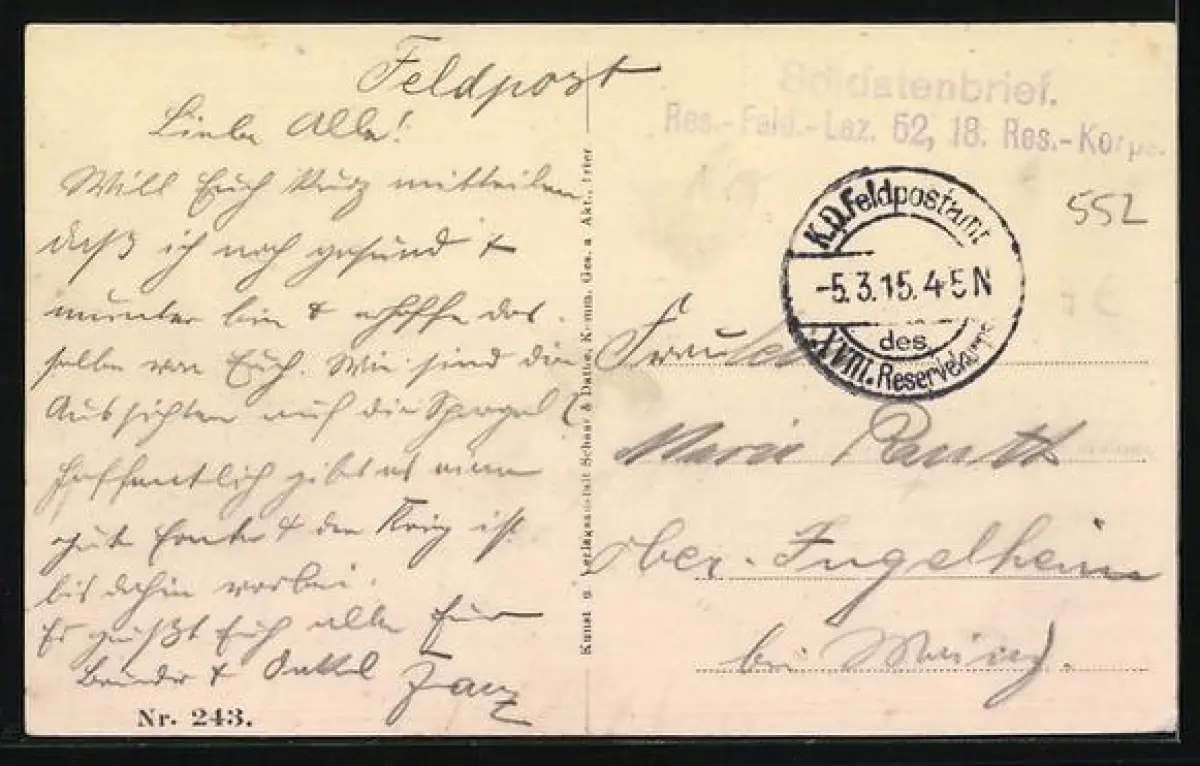 Feldpost
Liebe Alle!
Will Euch kurz mitteilen
daß ich noch gesund &
munter bin & erhoffe das-
selbe von Euch. Wie sind die
Aussichten auf die Spargel?
Hoffentlich gibt es eine
gute Ernte & der Krieg ist
bis dahin vorbei.
Es grüßt Euch alle Euer
Bruder & Onkel Franz
Nr. 243.
Kunst u. Verlagsanstalt Schaar & Dathe, Komm. Ges. a Akt., Trier
Soldatenbrief.
Res.-Feld.-Laz. 52, 18. Res.-Korps.
K.D. Feldpostamt
-5.3.15.4-5N
des
XVIII. Reservekorps
552
Fraulein
Marie
Ober-Ingelheim
bei Mainz.